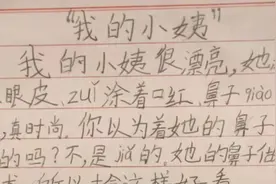 "我的小姨"
我的小姨很漂亮,她
眼皮、zuǐ涂着口红、鼻子qiào
,真时尚.你以为着她的鼻子
的吗?不,是jiǎ的.她的鼻子做